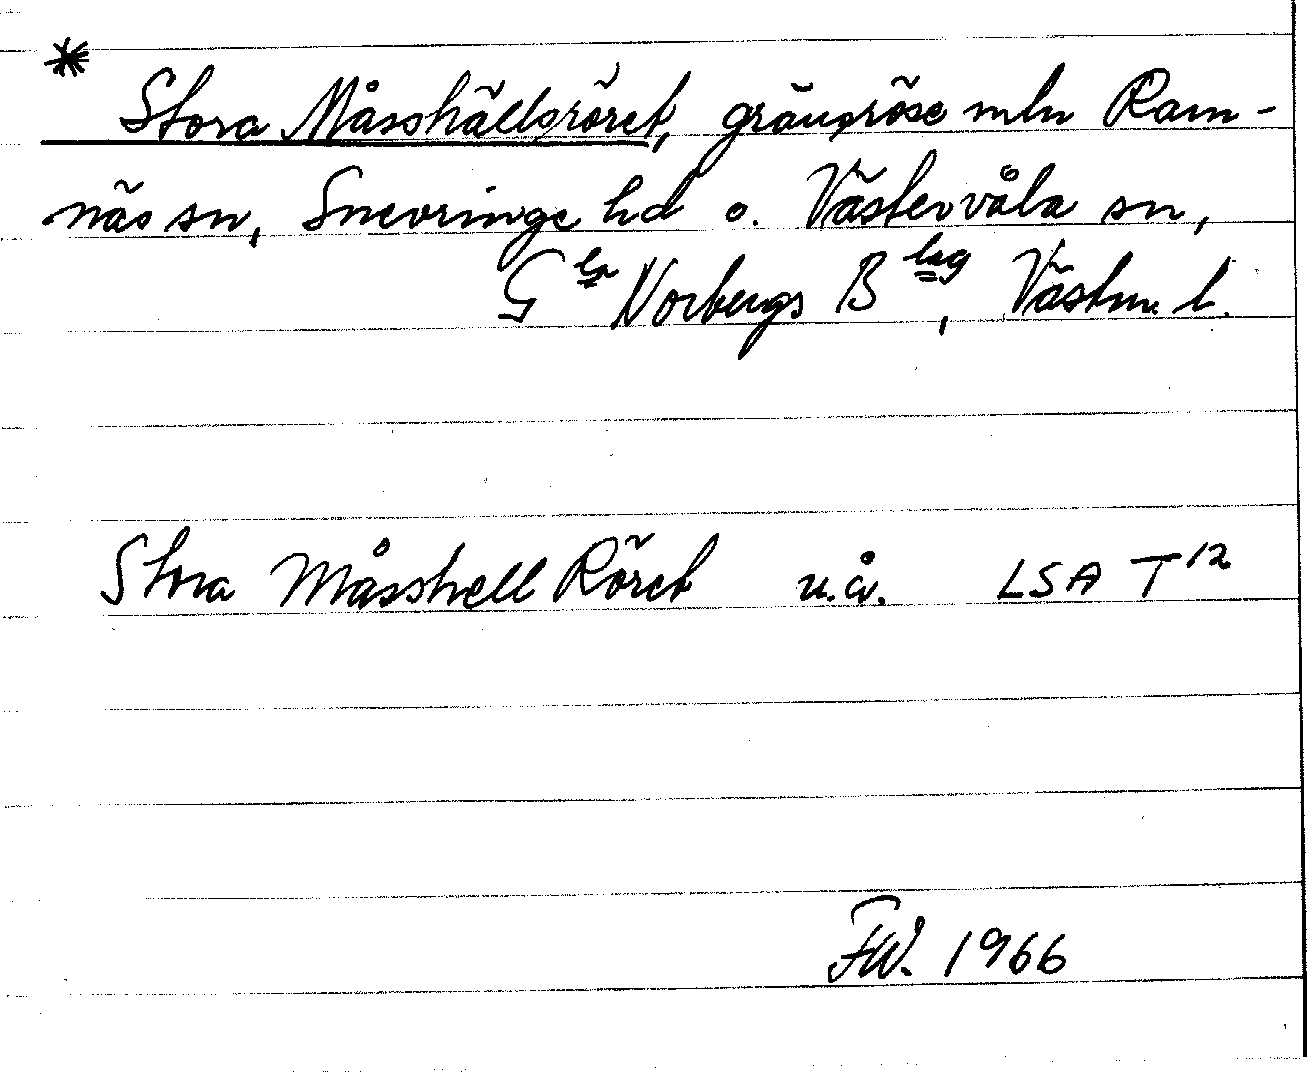 * Stora Måsshällsröret, gränsröse mln Ram-
näs sn, Snevringe hd o. Västervåla sn,
G^la Norbergs B^lag, Västm. l.
Stora Måsshell Röret u.å. LSA T^12
FW. 1966